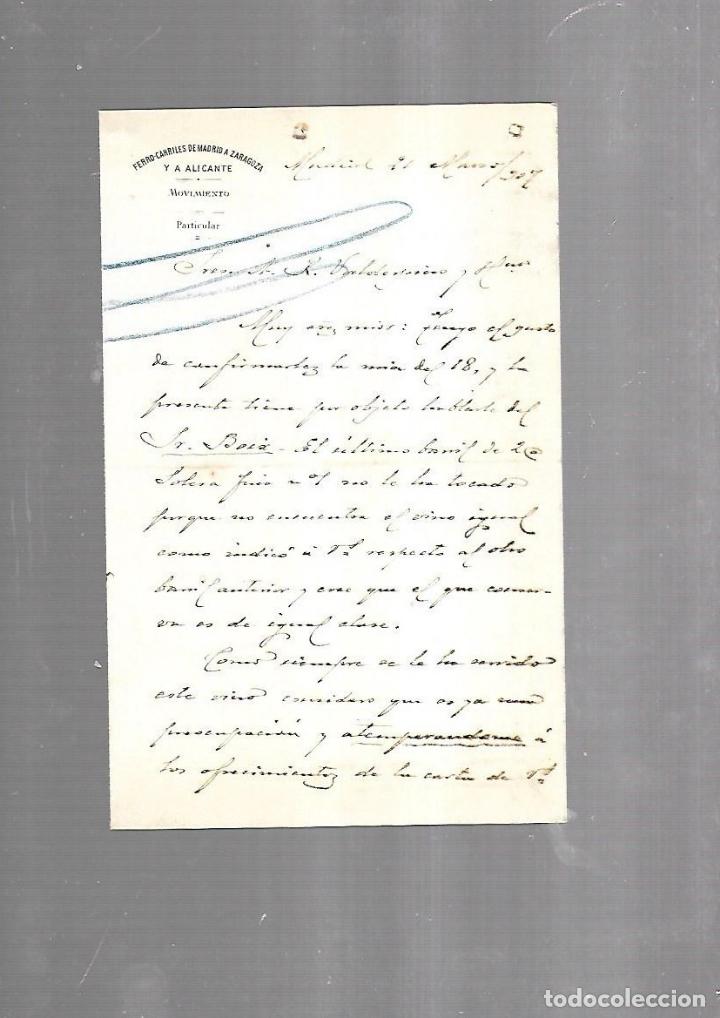 FERRO-CARRILES DE MADRID A ZARAGOZA
Y A ALICANTE
MOVIMIENTO
Particular
Madrid 21 Marzo/907
Sres. A. R. Valdespino y Hno
Muy Sres mios: Tengo el gusto
de confirmarles la mia del 18, y la
presente tiene por objeto hablarle del
Sr. Boix - El último barril de 2@
Solera fina nº1 no le ha tocado
porque no encuentra el vino igual
como indicó á Vd respecto al otro
barril anterior y cree que el que conser-
va es de igual clase.
Como siempre se le ha servido
este vino considero que es ya una
preocupación y atemperandome á
los ofrecimientos de la carta de Vd
todocoleccion.net